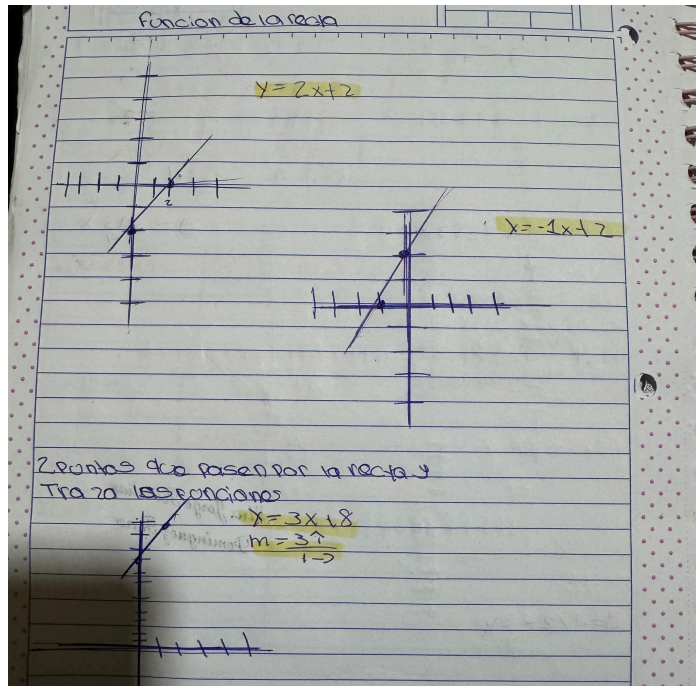 Funcion de la recta
y = 2x+2
2
y = -1x+2
2 puntos que pasen por la recta y
Traza las funciones
y = 3x+8
m = 3↑
1→